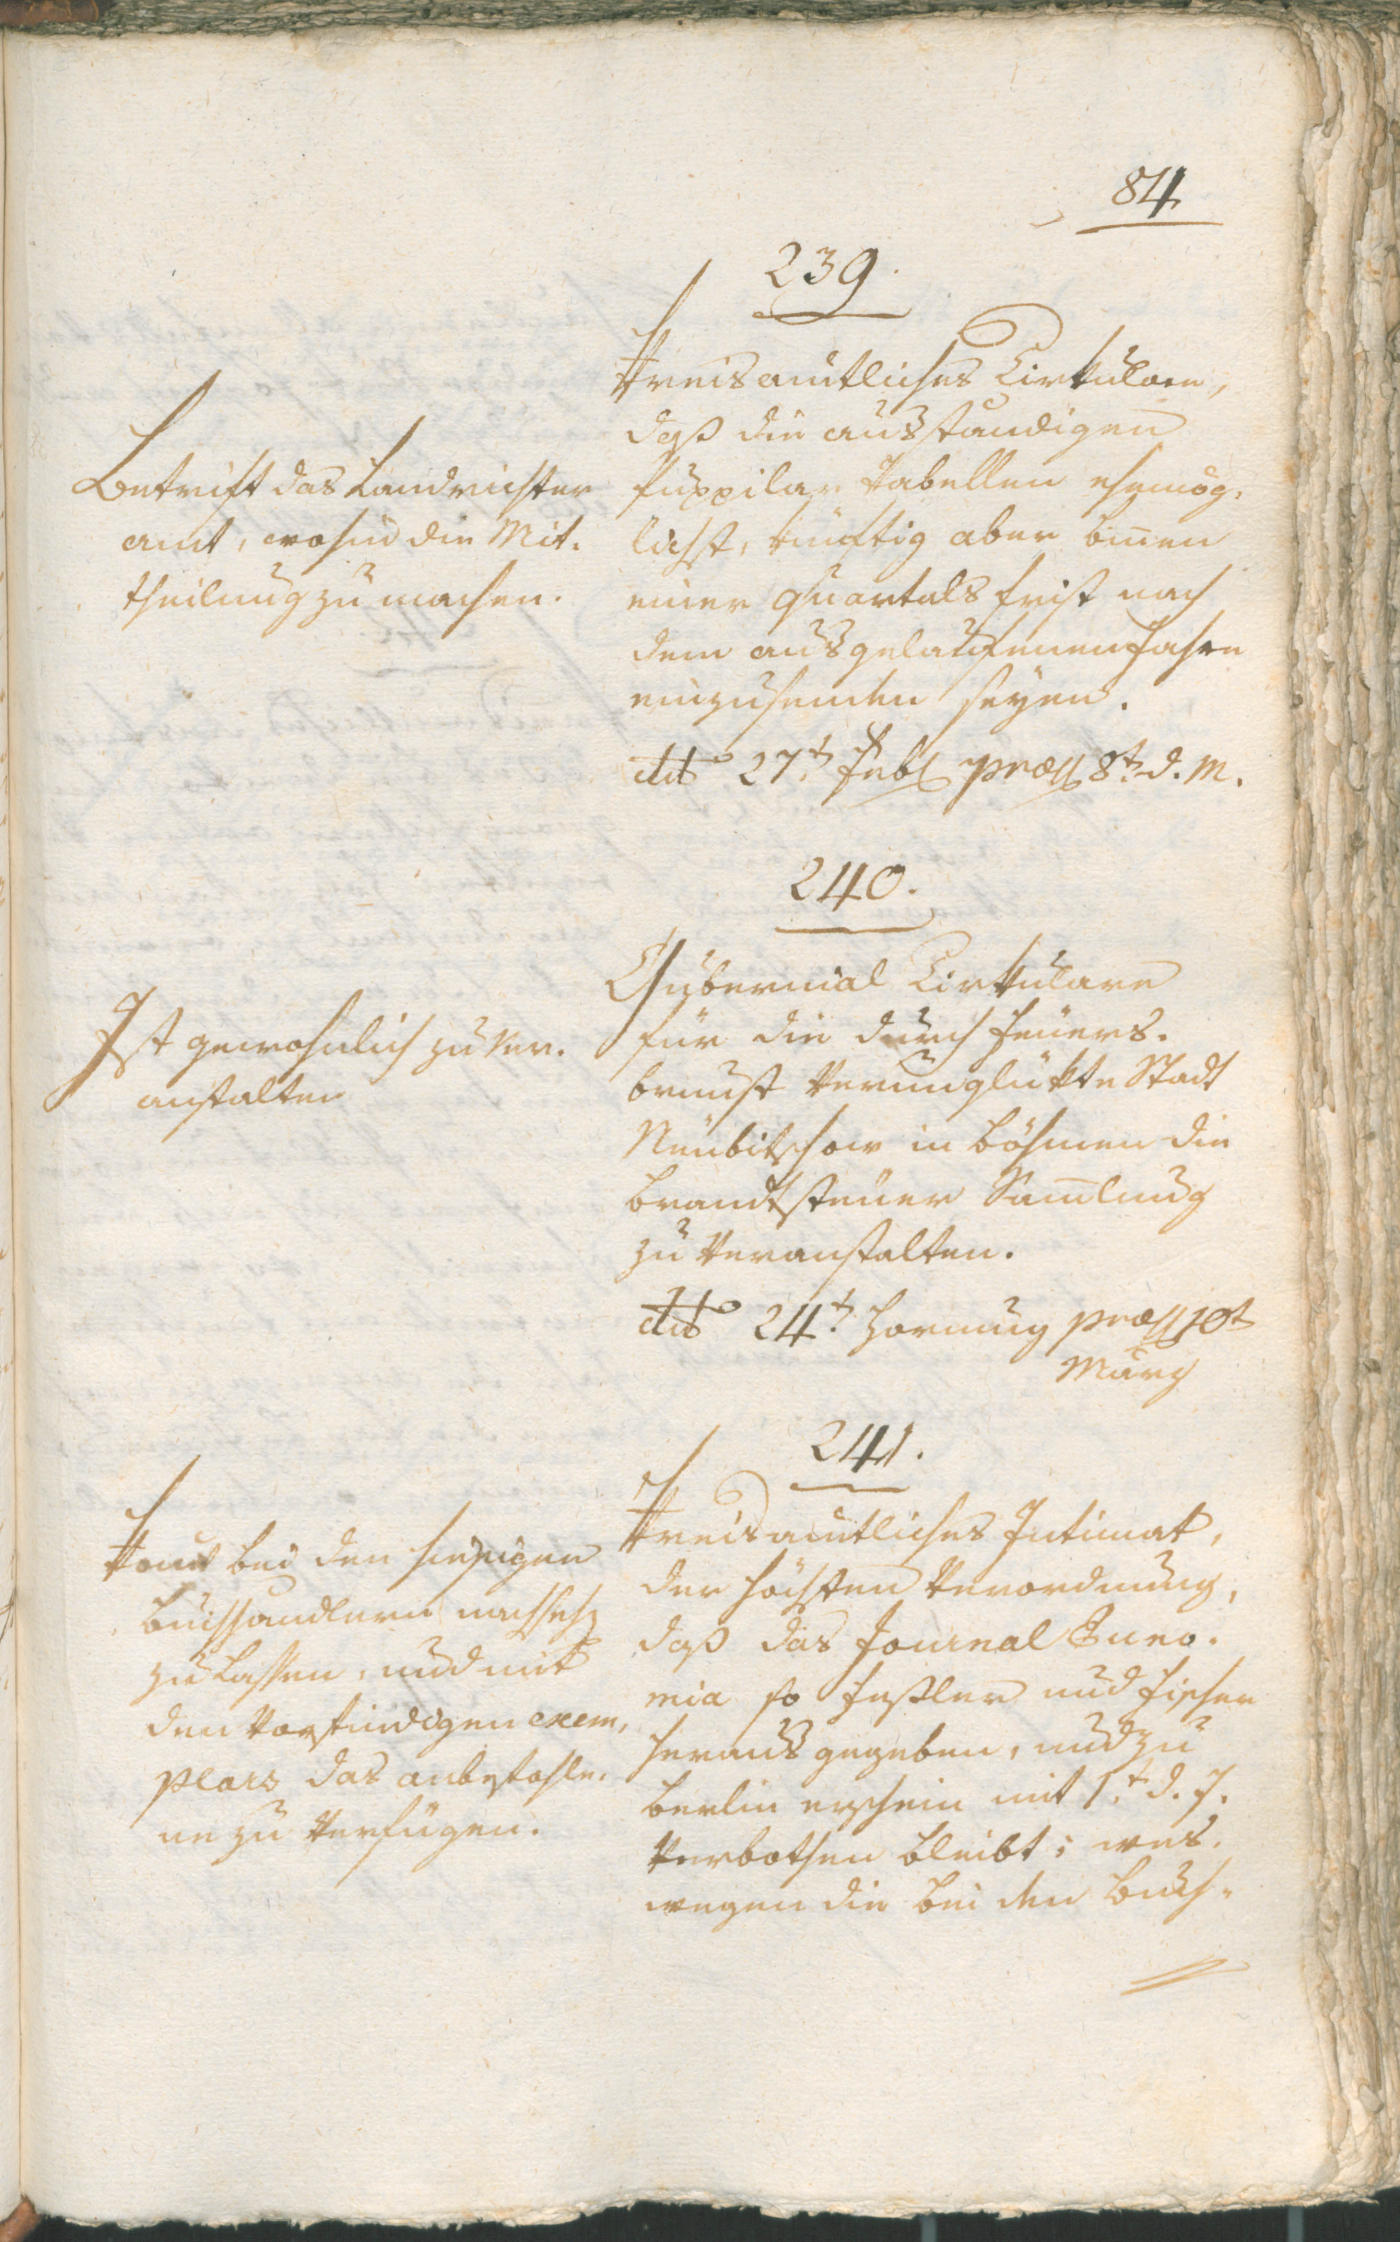 84
239.
Kreisamtliches Cirkulare,
daß die ausständigen
Puppilar Tabellen ehemög-
lichst, künftig aber binnen
einer Quartals frist nach
dem ausgelaufenen Jahre
einzusenden seyen.
ddto 27t. Febr praes 8t. d. M.
Betrift das Landrichter
amt, wohin die Mit-
theilung zu machen.
240.
Gubernial Cirkulare
für die durch Feuers-
brunst verunglükte Stadt
Neubitschow in Böhmen die
Brandsteuer Sammlung
zu veranstalten.
ddto 24t. Hornung praes 10t
März
Ist gewohnlich zu ver-
anstalten
241.
Kreisamtliches Intimat,
der höchsten Verordnung,
daß das Journal Euno-
mia so Feßler und Fischer
herausgegeben, und zu
Berlin erschein mit 1t. d. J.
verbothen bleibt; wes-
wegen die bei den Buch-
Komt bei den hiesigen
Buchhandlern nachseh
zu lassen, und mit
den vorfindigen exem-
plars das anbefohle-
ne zu verfügen.